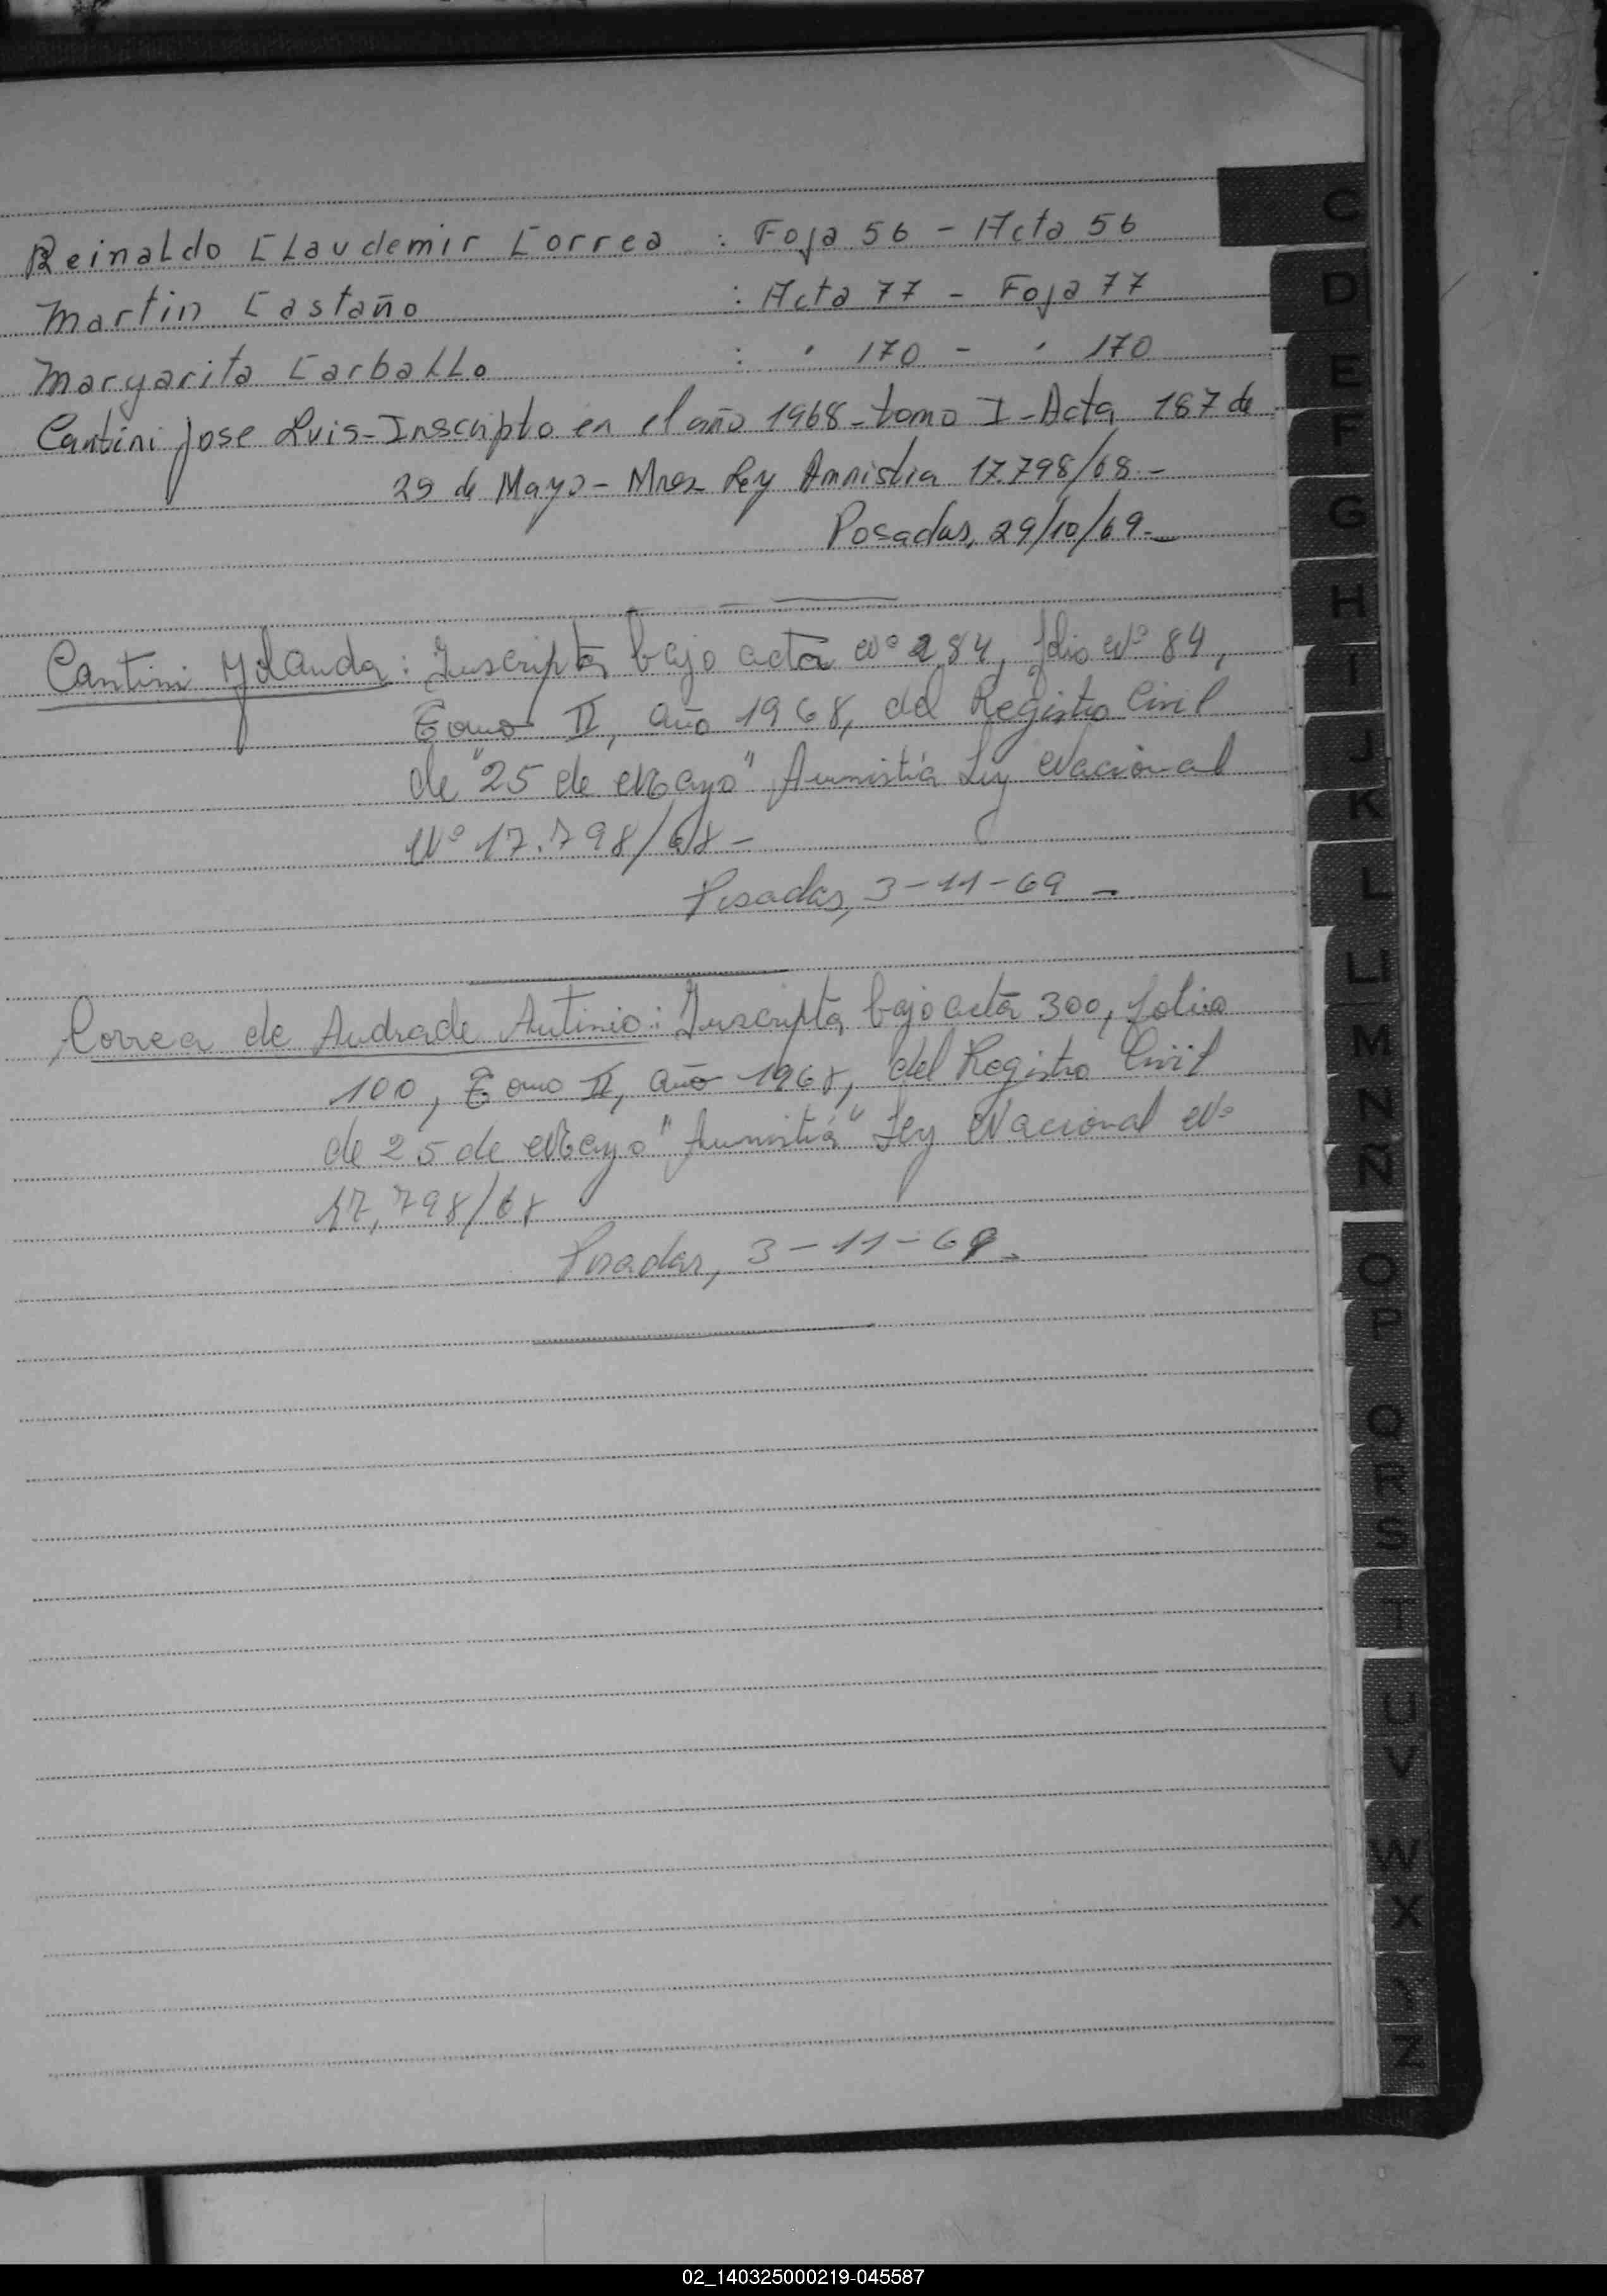 Reinaldo Claudemir Correa : Foja 56 - Acta 56
Martin Castaño : Acta 77 - Foja 77
Margarita Carballo : " 170 - " 170
Cantini Jose Luis - Inscripto en el año 1968 - tomo I - Acta 187 de
29 de Mayo - Mnes Ley Amnistia 17.798/68 -
Posadas, 29/10/69 -
Cantini Yolanda : Inscripta bajo acta Nº 284, folio Nº 84,
Tomo II, año 1968, del Registro Civil
de "25 de Mayo" Amnistía Ley Nacional
Nº 17.798/68 -
Posadas, 3-11-69 -
Correa de Andrade Antinio : Inscripta bajo acta 300, folio
100, Tomo II, año 1968, del Registro Civil
de 25 de Mayo "Amnistía" Ley Nacional Nº
17,798/68
Posadas, 3-11-69.
C
D
E
F
G
H
I
J
K
L
LL
M
N
Ñ
O
P
Q
R
S
T
U
V
W
X
Z
02_140325000219-045587